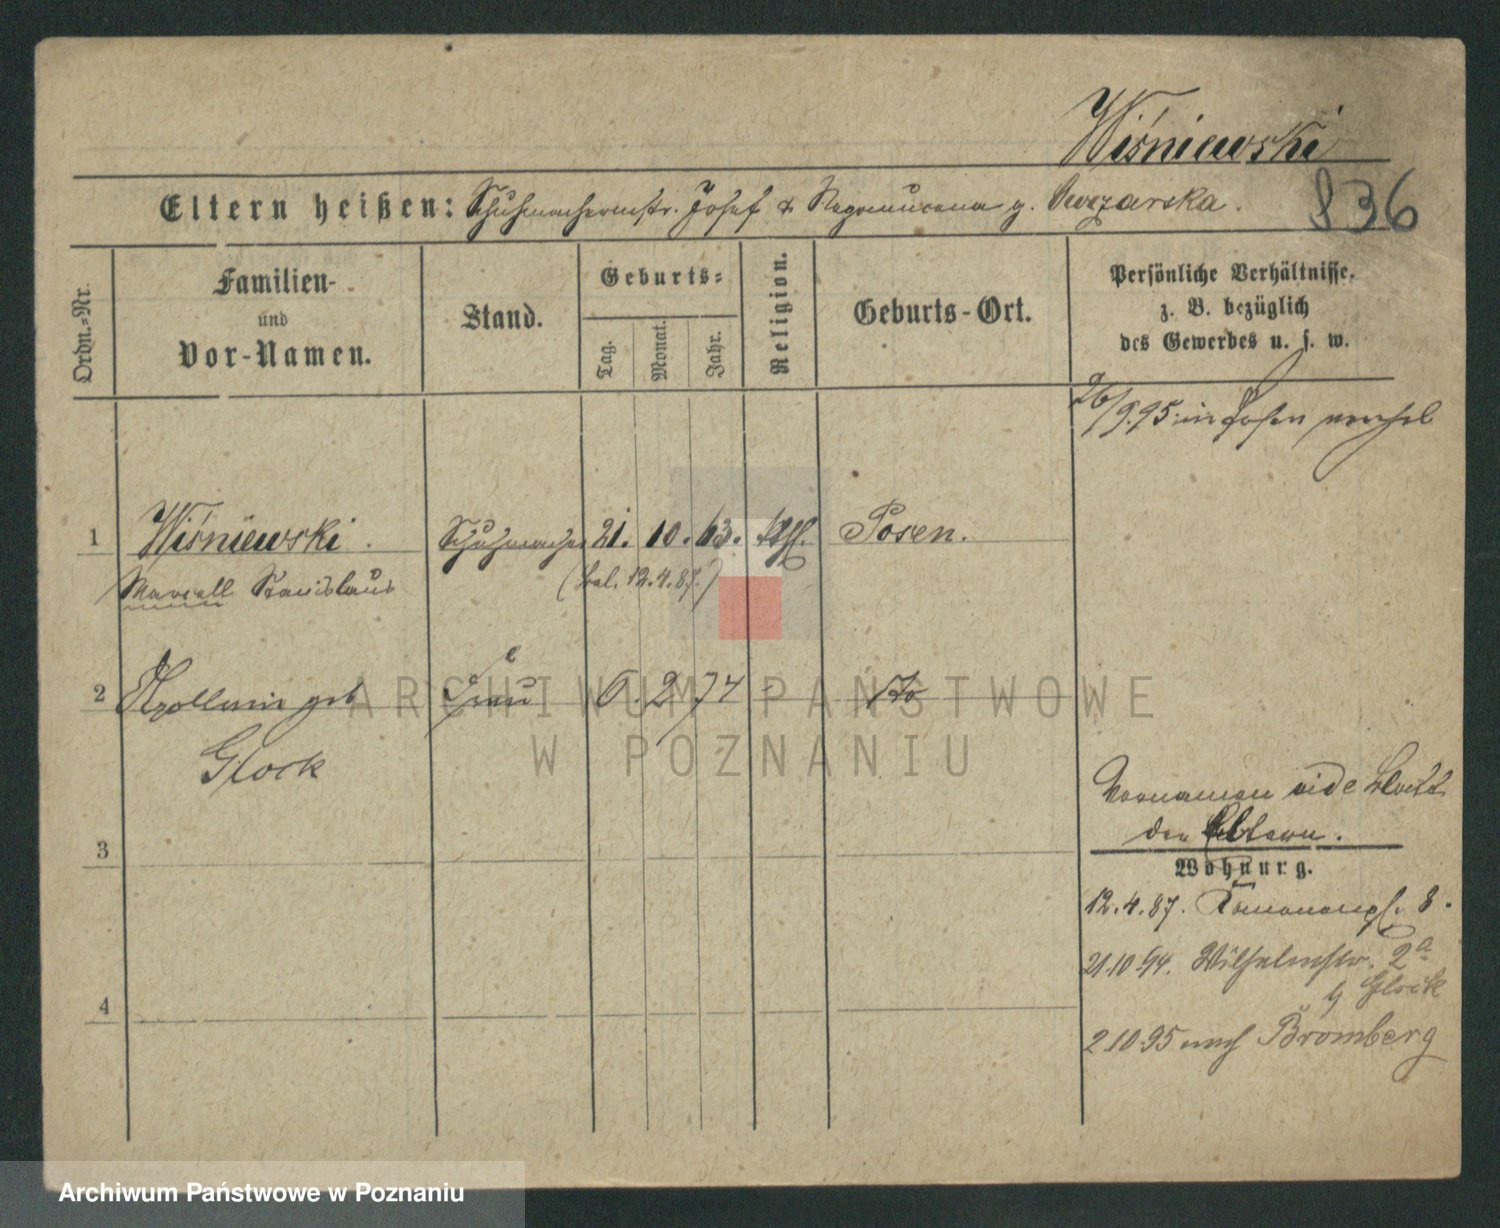 Wiśniewski
836
Eltern heißen: Schuhmachermstr. Josef & Nepomucena g. Owczarska.
Ordn.=Nr.
Familien- und Vor-Namen.
Stand.
Geburts=
Tag. Monat. Jahr.
Religion.
Geburts-Ort.
Persönliche Verhältnisse.
z. B. bezüglich
des Gewerbes u. s. w.
26/9.95 in Posen
1 Wiśniewski. Schuhmacher 21. 10. 63. kath. Posen.
Marcell Stanislaus (12.4.87.)
2 Apollonia geb Frau 6. 2 74 - do
Glock
3
Vornamen vide Blatt
der Eltern.
Wohnung.
12.4.87. 8.
21.10.94. Wilhelmstr. 2a
b Glock
4
2.10.95 nach Bromberg
ARCHIWUM PAŃSTWOWE
W POZNANIU
Archiwum Państwowe w Poznaniu